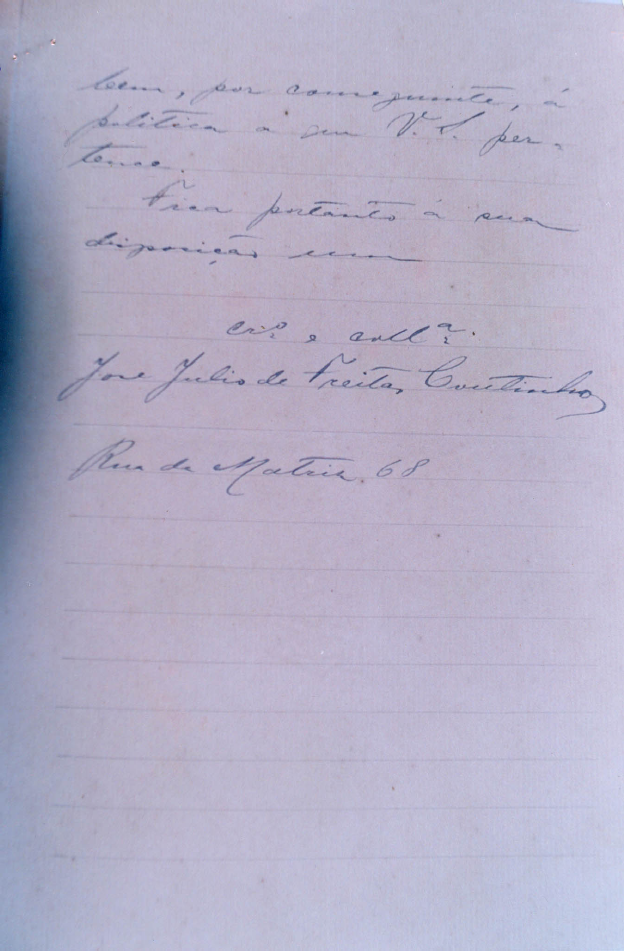 bem, por conseguinte, á
politica a que V. S. per-
tence.
Fica portanto á sua
disposição um
cr.º e coll.ª
José Julio de Freitas Coutinho
Rua da Matriz 68